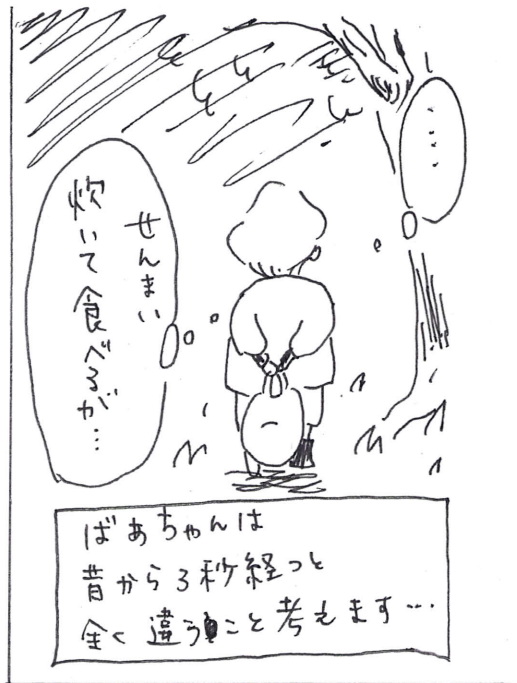 ‥‥
せんまい
炊いて食べるが…
ばあちゃんは
昔から3秒経っと
全く違うこと考えます…